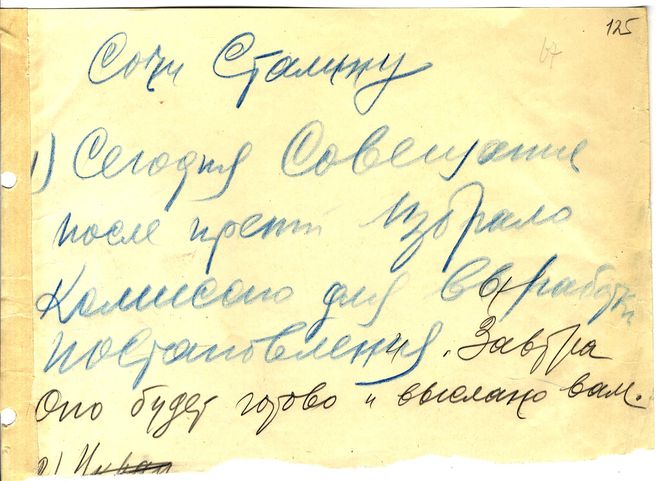 125
67
Сочи Сталину
1) Сегодня Совещание
после прений избрало
Комиссию для выработки
постановления. Завтра
оно будет готово и выслано вам.
2)